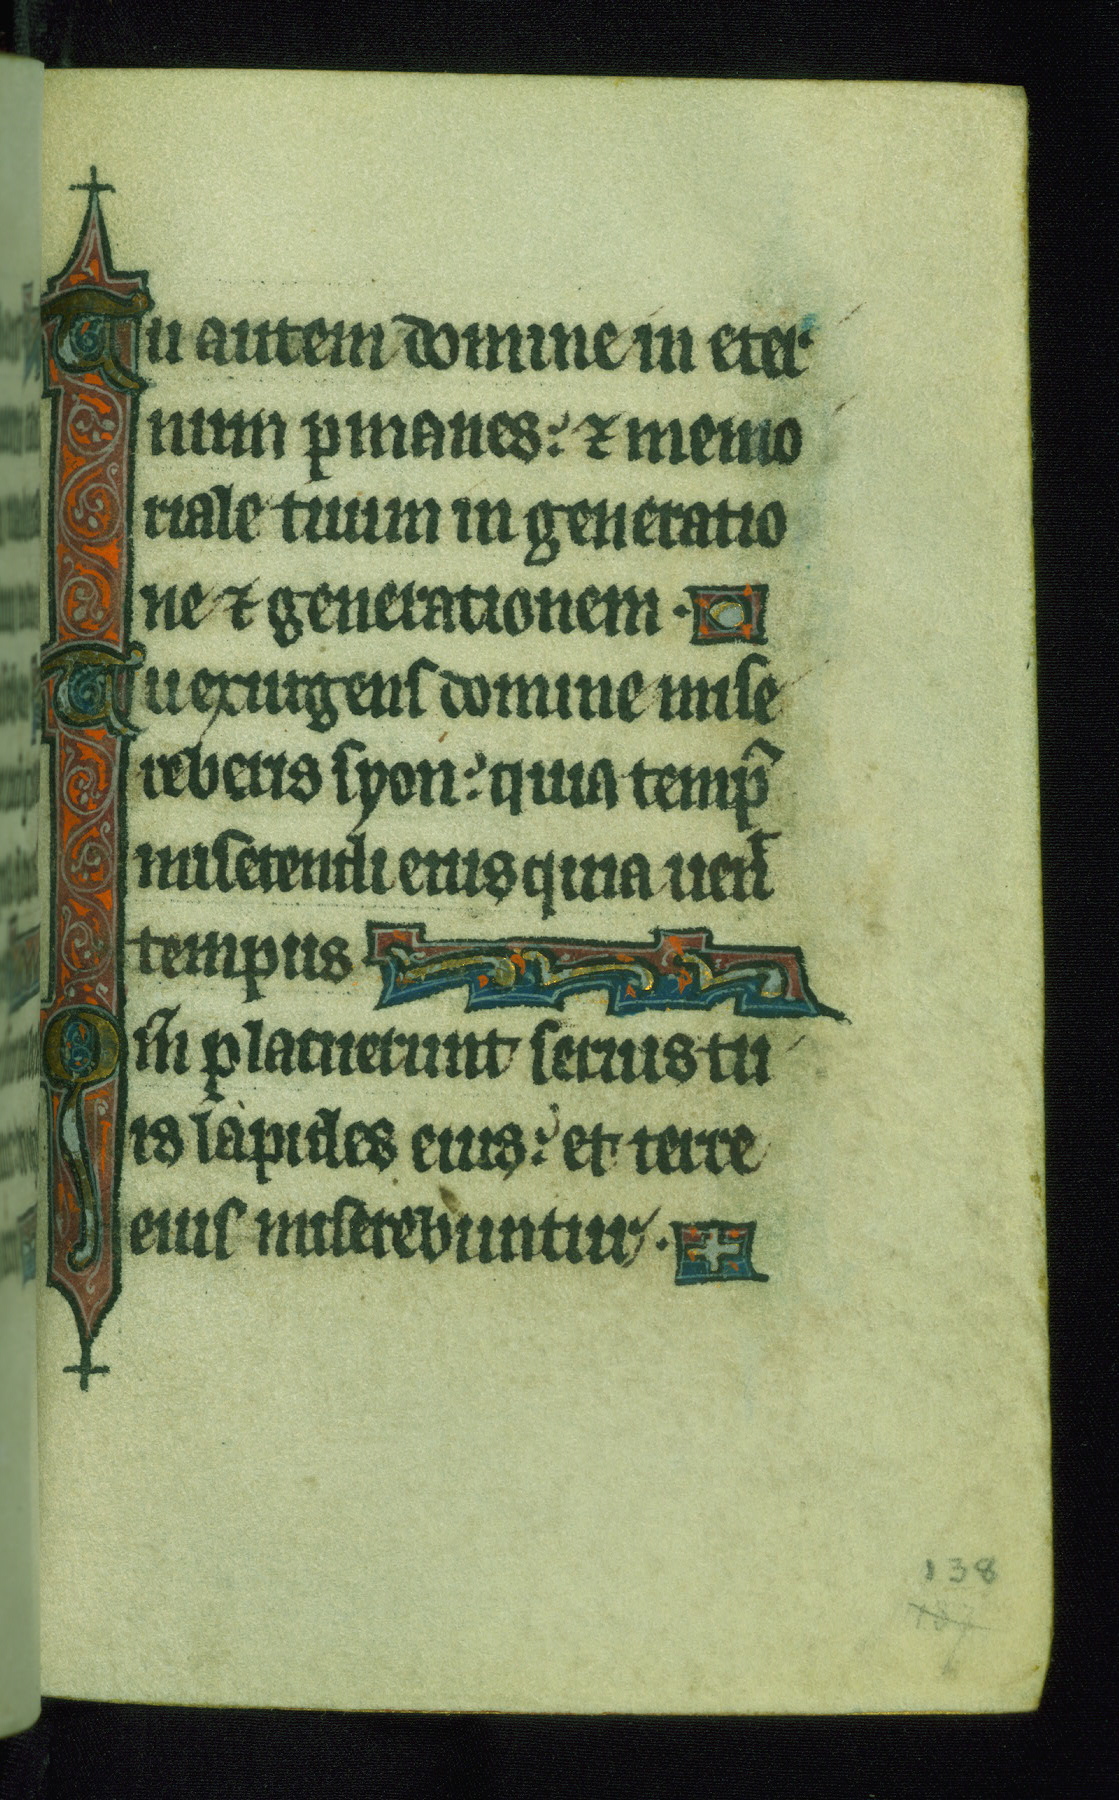 Tu autem domine in eter
num ꝑmanes: ⁊ memo
riale tuum in generatio
ne ⁊ generationem ·
Tu exurgens domine mise
reberis syon: quia temp̃
miserendi eius quia uenĩ
tempus
Qm̃ placuerunt seruis tu
is lapides eius: et terre
eius miserebuntur ·
138
187